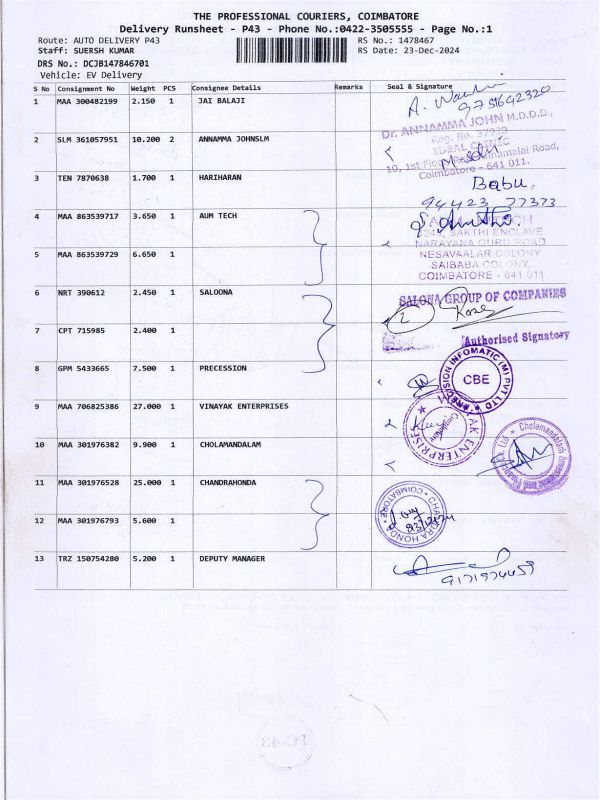 THE PROFESSIONAL COURIERS, COIMBATORE
Delivery Runsheet - P43 - Phone No.:0422-3505555 - Page No.:1
Route: AUTO DELIVERY P43 RS No.: 1478467
Staff: SUERSH KUMAR RS Date: 23-Dec-2024
DRS No.: DCJB147846701
Vehicle: EV Delivery
S No Consignment No Weight PCS Consignee Details Remarks Seal & Signature
1 MAA 300482199 2.150 1 JAI BALAJI
9751642320
2 SLM 361057951 10.200 2 ANNAMMA JOHNSLM
Dr. ANNAMMA JOHN M.D.D.D.,
Reg. No. 37920
IDEAL CLINIC
10, 1st Floor, Annamalai Road,
Coimbatore - 641 011.
3 TEN 7870638 1.700 1 HARIHARAN
Babu.
94423 77373
4 MAA 863539717 3.650 1 AUM TECH
SAKTHI ENCLAVE
NARAYANA GURU ROAD
NESAVAALAR COLONY
SAIBABA COLONY,
COIMBATORE - 641 011
5 MAA 863539729 6.650 1
6 NRT 390612 2.450 1 SALOONA
SALONA GROUP OF COMPANIES
2
Authorised Signatory
7 CPT 715985 2.400 1
8 GPM 5433665 7.500 1 PRECESSION
PRECISION INFOMATIC (M) PVT LTD
CBE
9 MAA 706825386 27.000 1 VINAYAK ENTERPRISES
10 MAA 301976382 9.900 1 CHOLAMANDALAM
Cholamandalam
11 MAA 301976528 25.000 1 CHANDRAHONDA
CHANDRA HONDA
COIMBATORE
23/12/24
12 MAA 301976793 5.600 1
13 TRZ 150754280 5.200 1 DEPUTY MANAGER